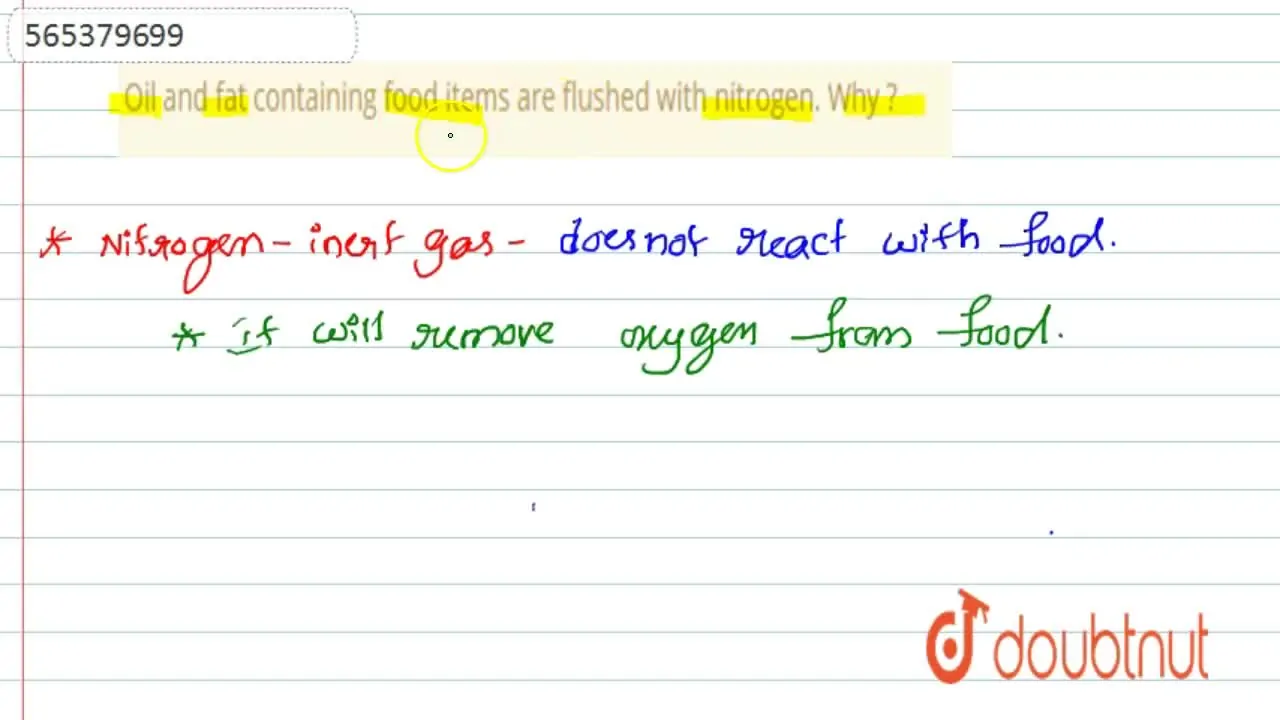 565379699
Oil and fat containing food items are flushed with nitrogen. Why ?
* Nitrogen - inert gas - does not react with food.
* it will remove oxygen from food.
doubtnut